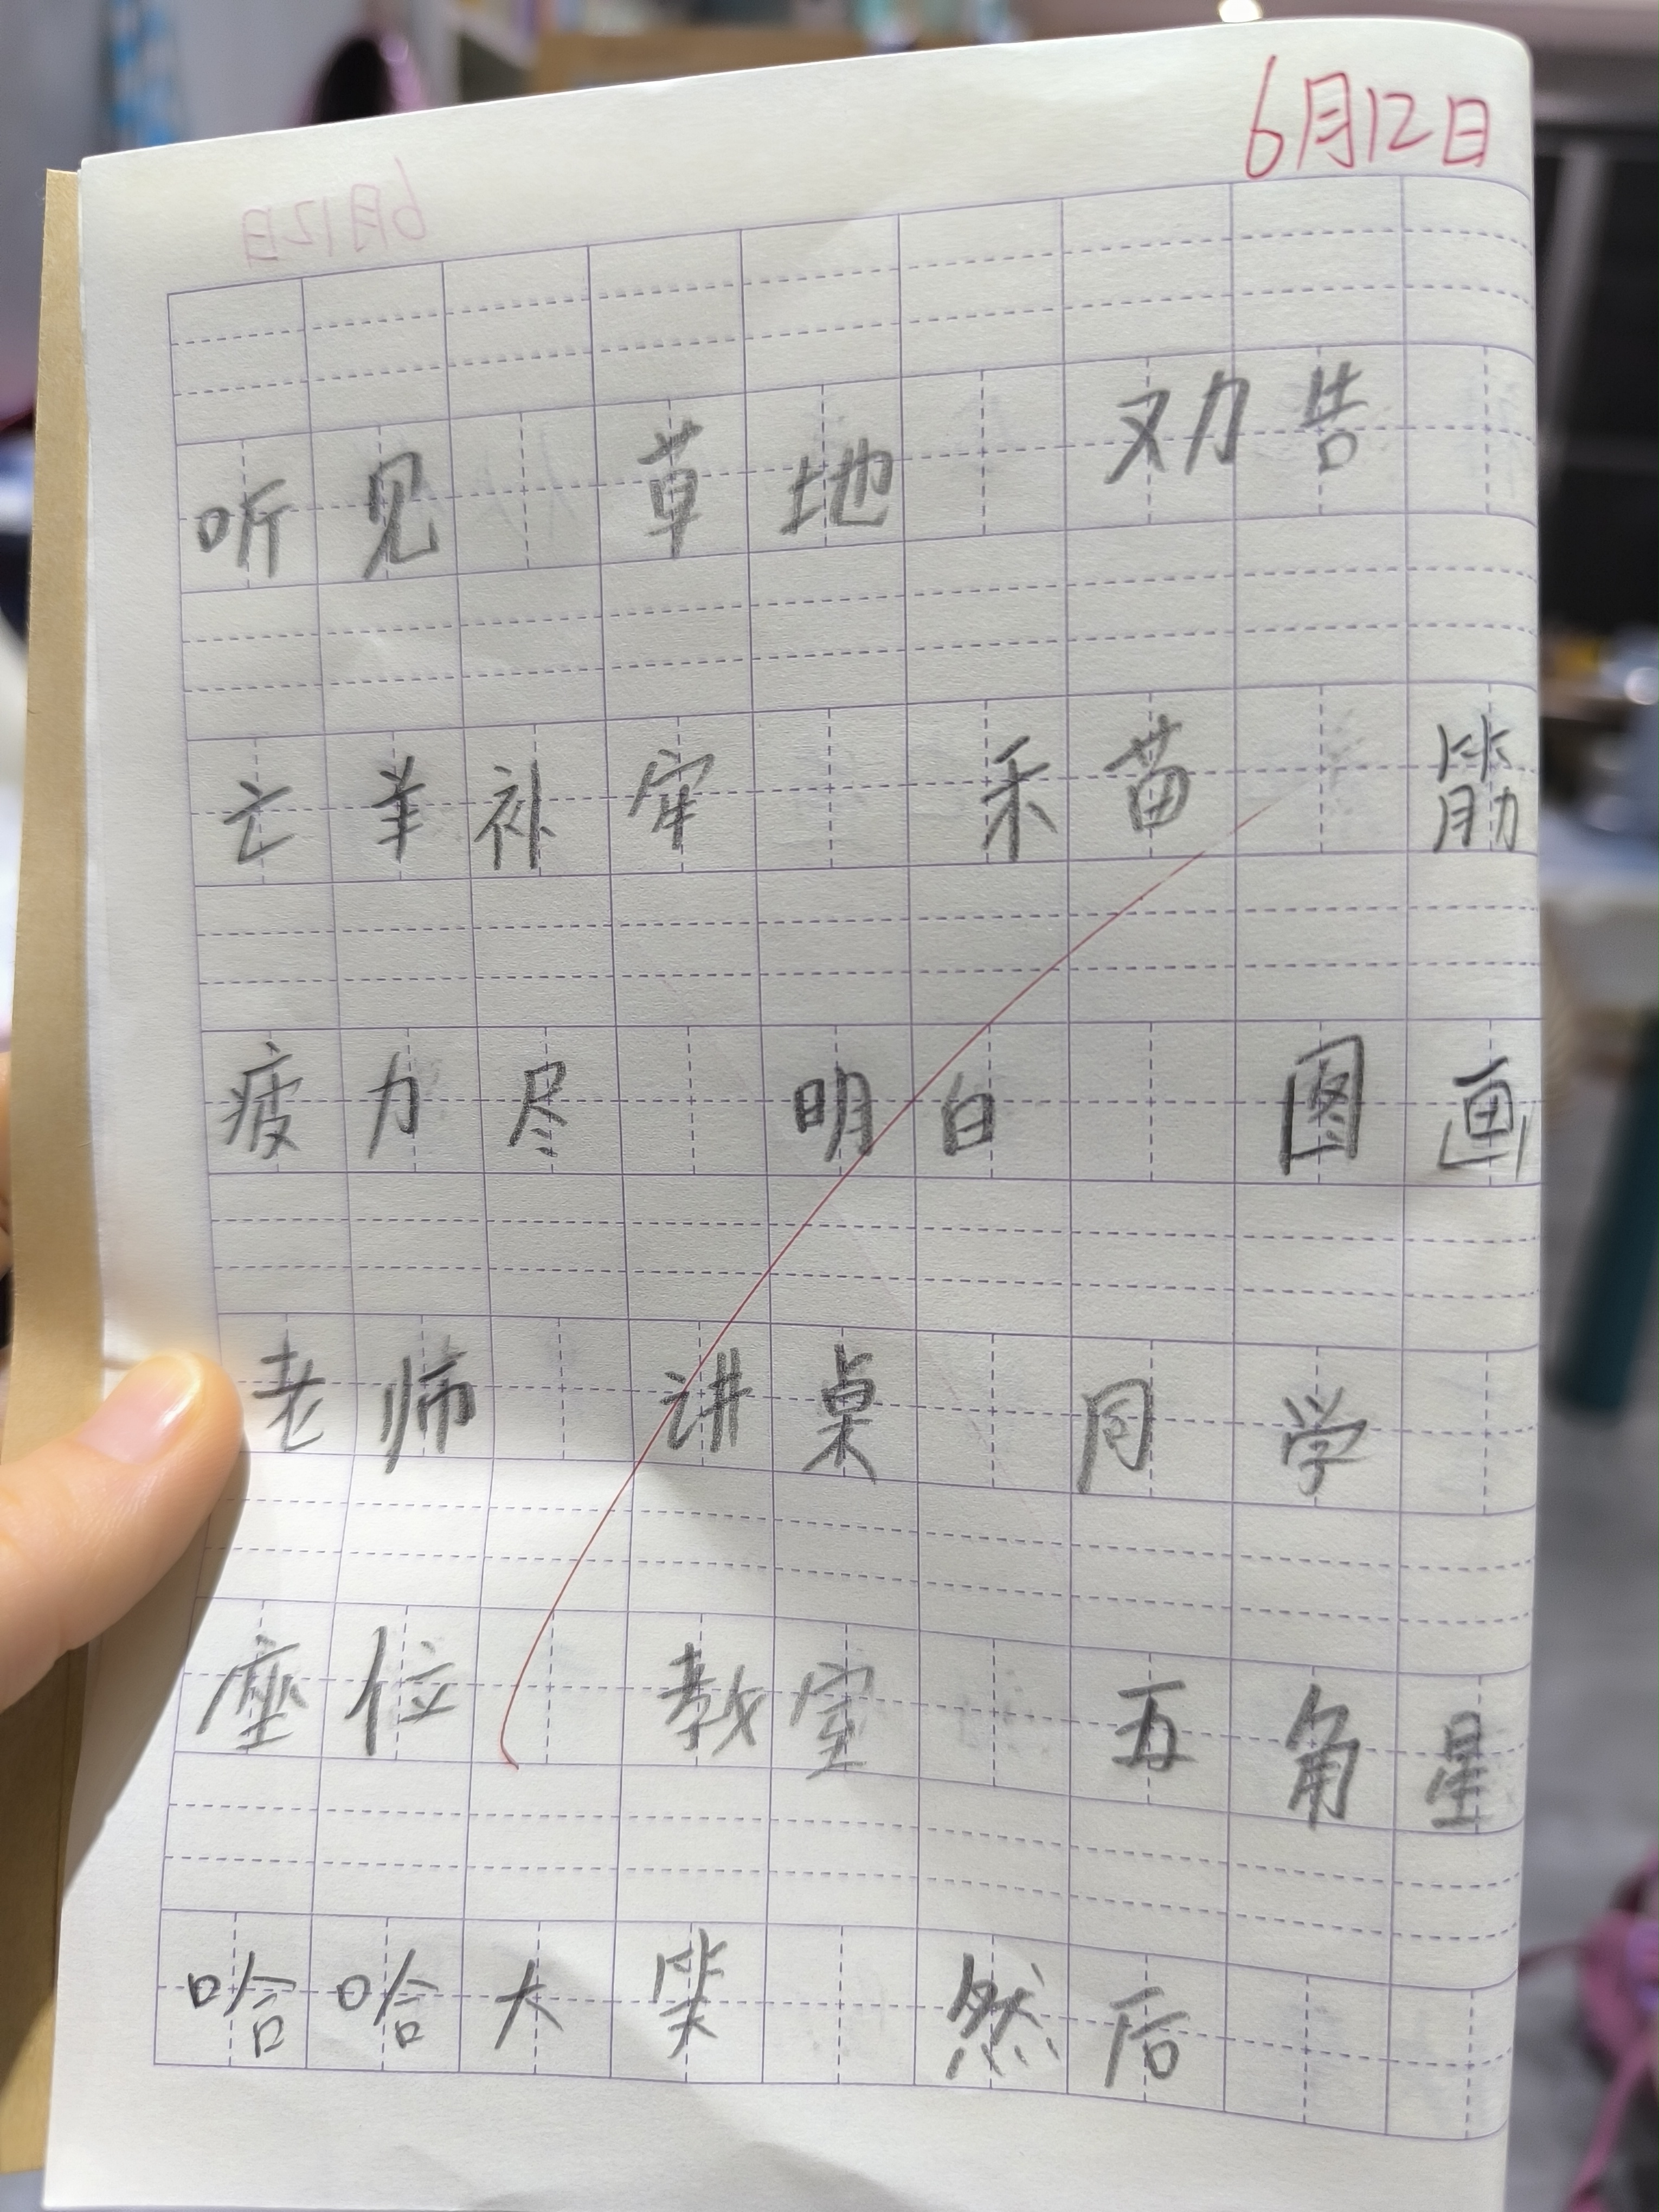 6月12日
听见 草地 劝告
亡羊补牢 禾苗 筋
疲力尽 明白 图画
老师 讲桌 同学
座位 教室 五角星
哈哈大笑 然后